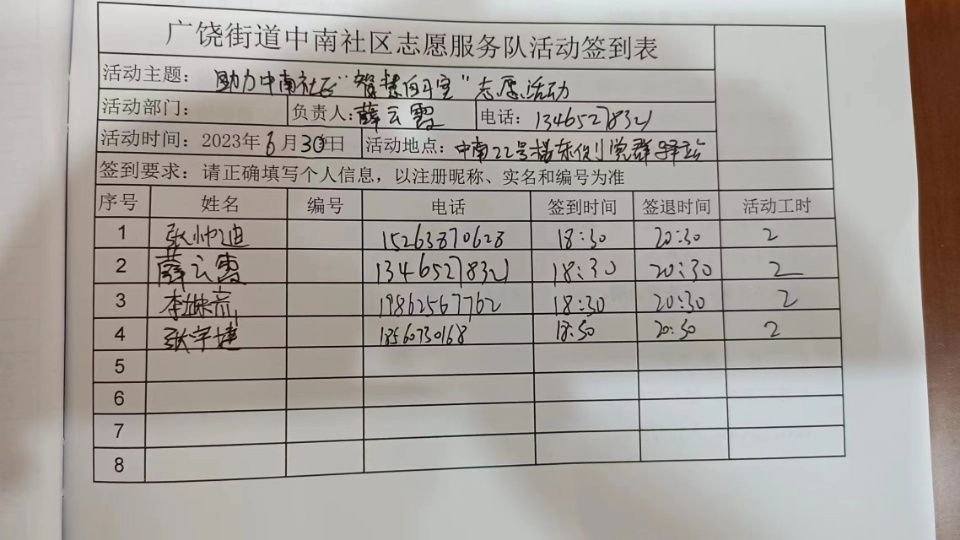 广饶街道中南社区志愿服务队活动签到表
活动主题: 助力中南社区"智慧自习室"志愿活动
活动部门: 负责人:薛云霞 电话: 13465278321
活动时间: 2023年6月30日 活动地点: 中南22号楼东侧党群驿站
签到要求: 请正确填写个人信息，以注册昵称、实名和编号为准
序号 姓名 编号 电话 签到时间 签退时间 活动工时
1 张帅迪 15263870628 18:30 20:30 2
2 薛云霞 13465278321 18:30 20:30 2
3 李 19862567762 18:30 20:30 2
4 张宇婕 18560730168 18:30 20:30 2
5
6
7
8